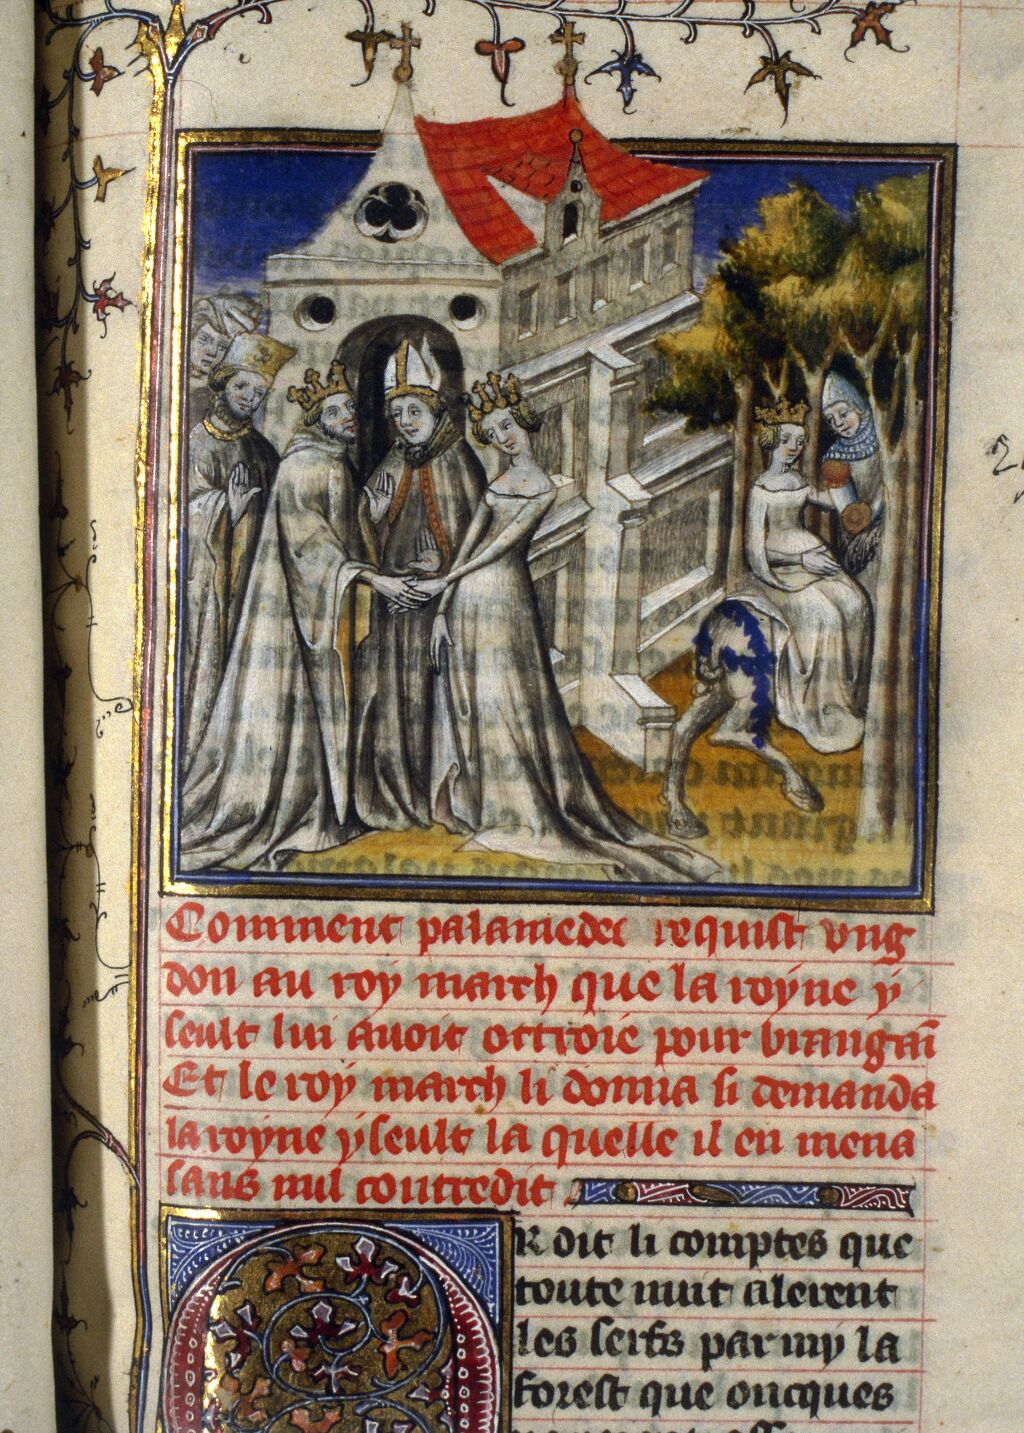 Comment palamedes requist ung
don au roy march que la royne y
seult lui avoit ottroie pour brangaī
Et le roy march li donna si demanda
la royne yseult la quelle il en mena
sans nul contredit
OR dit li comptes que
toute nuit alerent
les serfs parmy la
forest que oncques